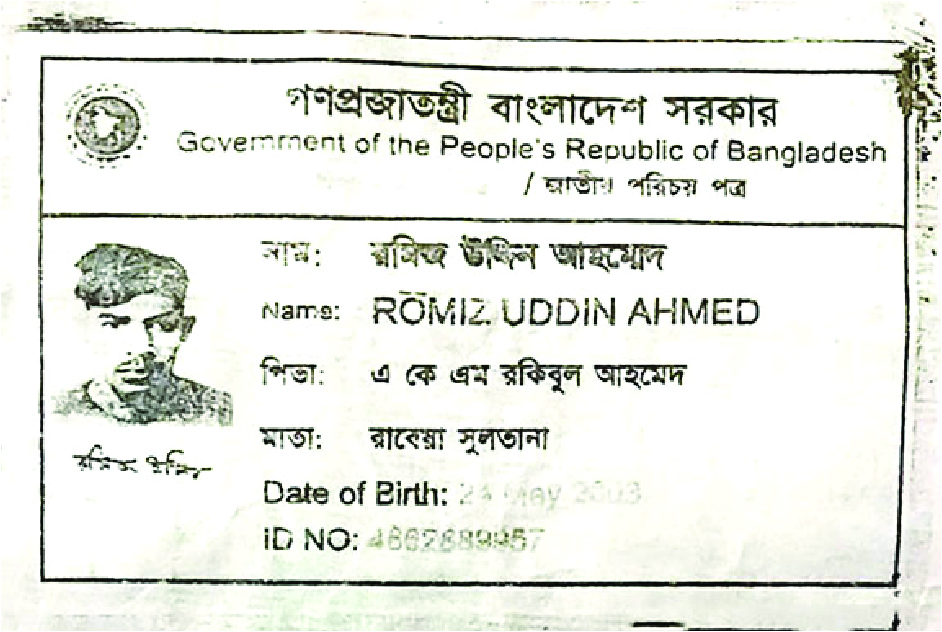 গণপ্রজাতন্ত্রী বাংলাদেশ সরকার
Government of the People's Republic of Bangladesh
/ জাতীয় পরিচয় পত্র
নাম: রমিজ উদ্দিন আহমেদ
Name: ROMIZ UDDIN AHMED
পিতা: এ কে এম রকিবুল আহমেদ
মাতা: রাবেয়া সুলতানা
রমিজ উদ্দিন
Date of Birth: May
ID NO: